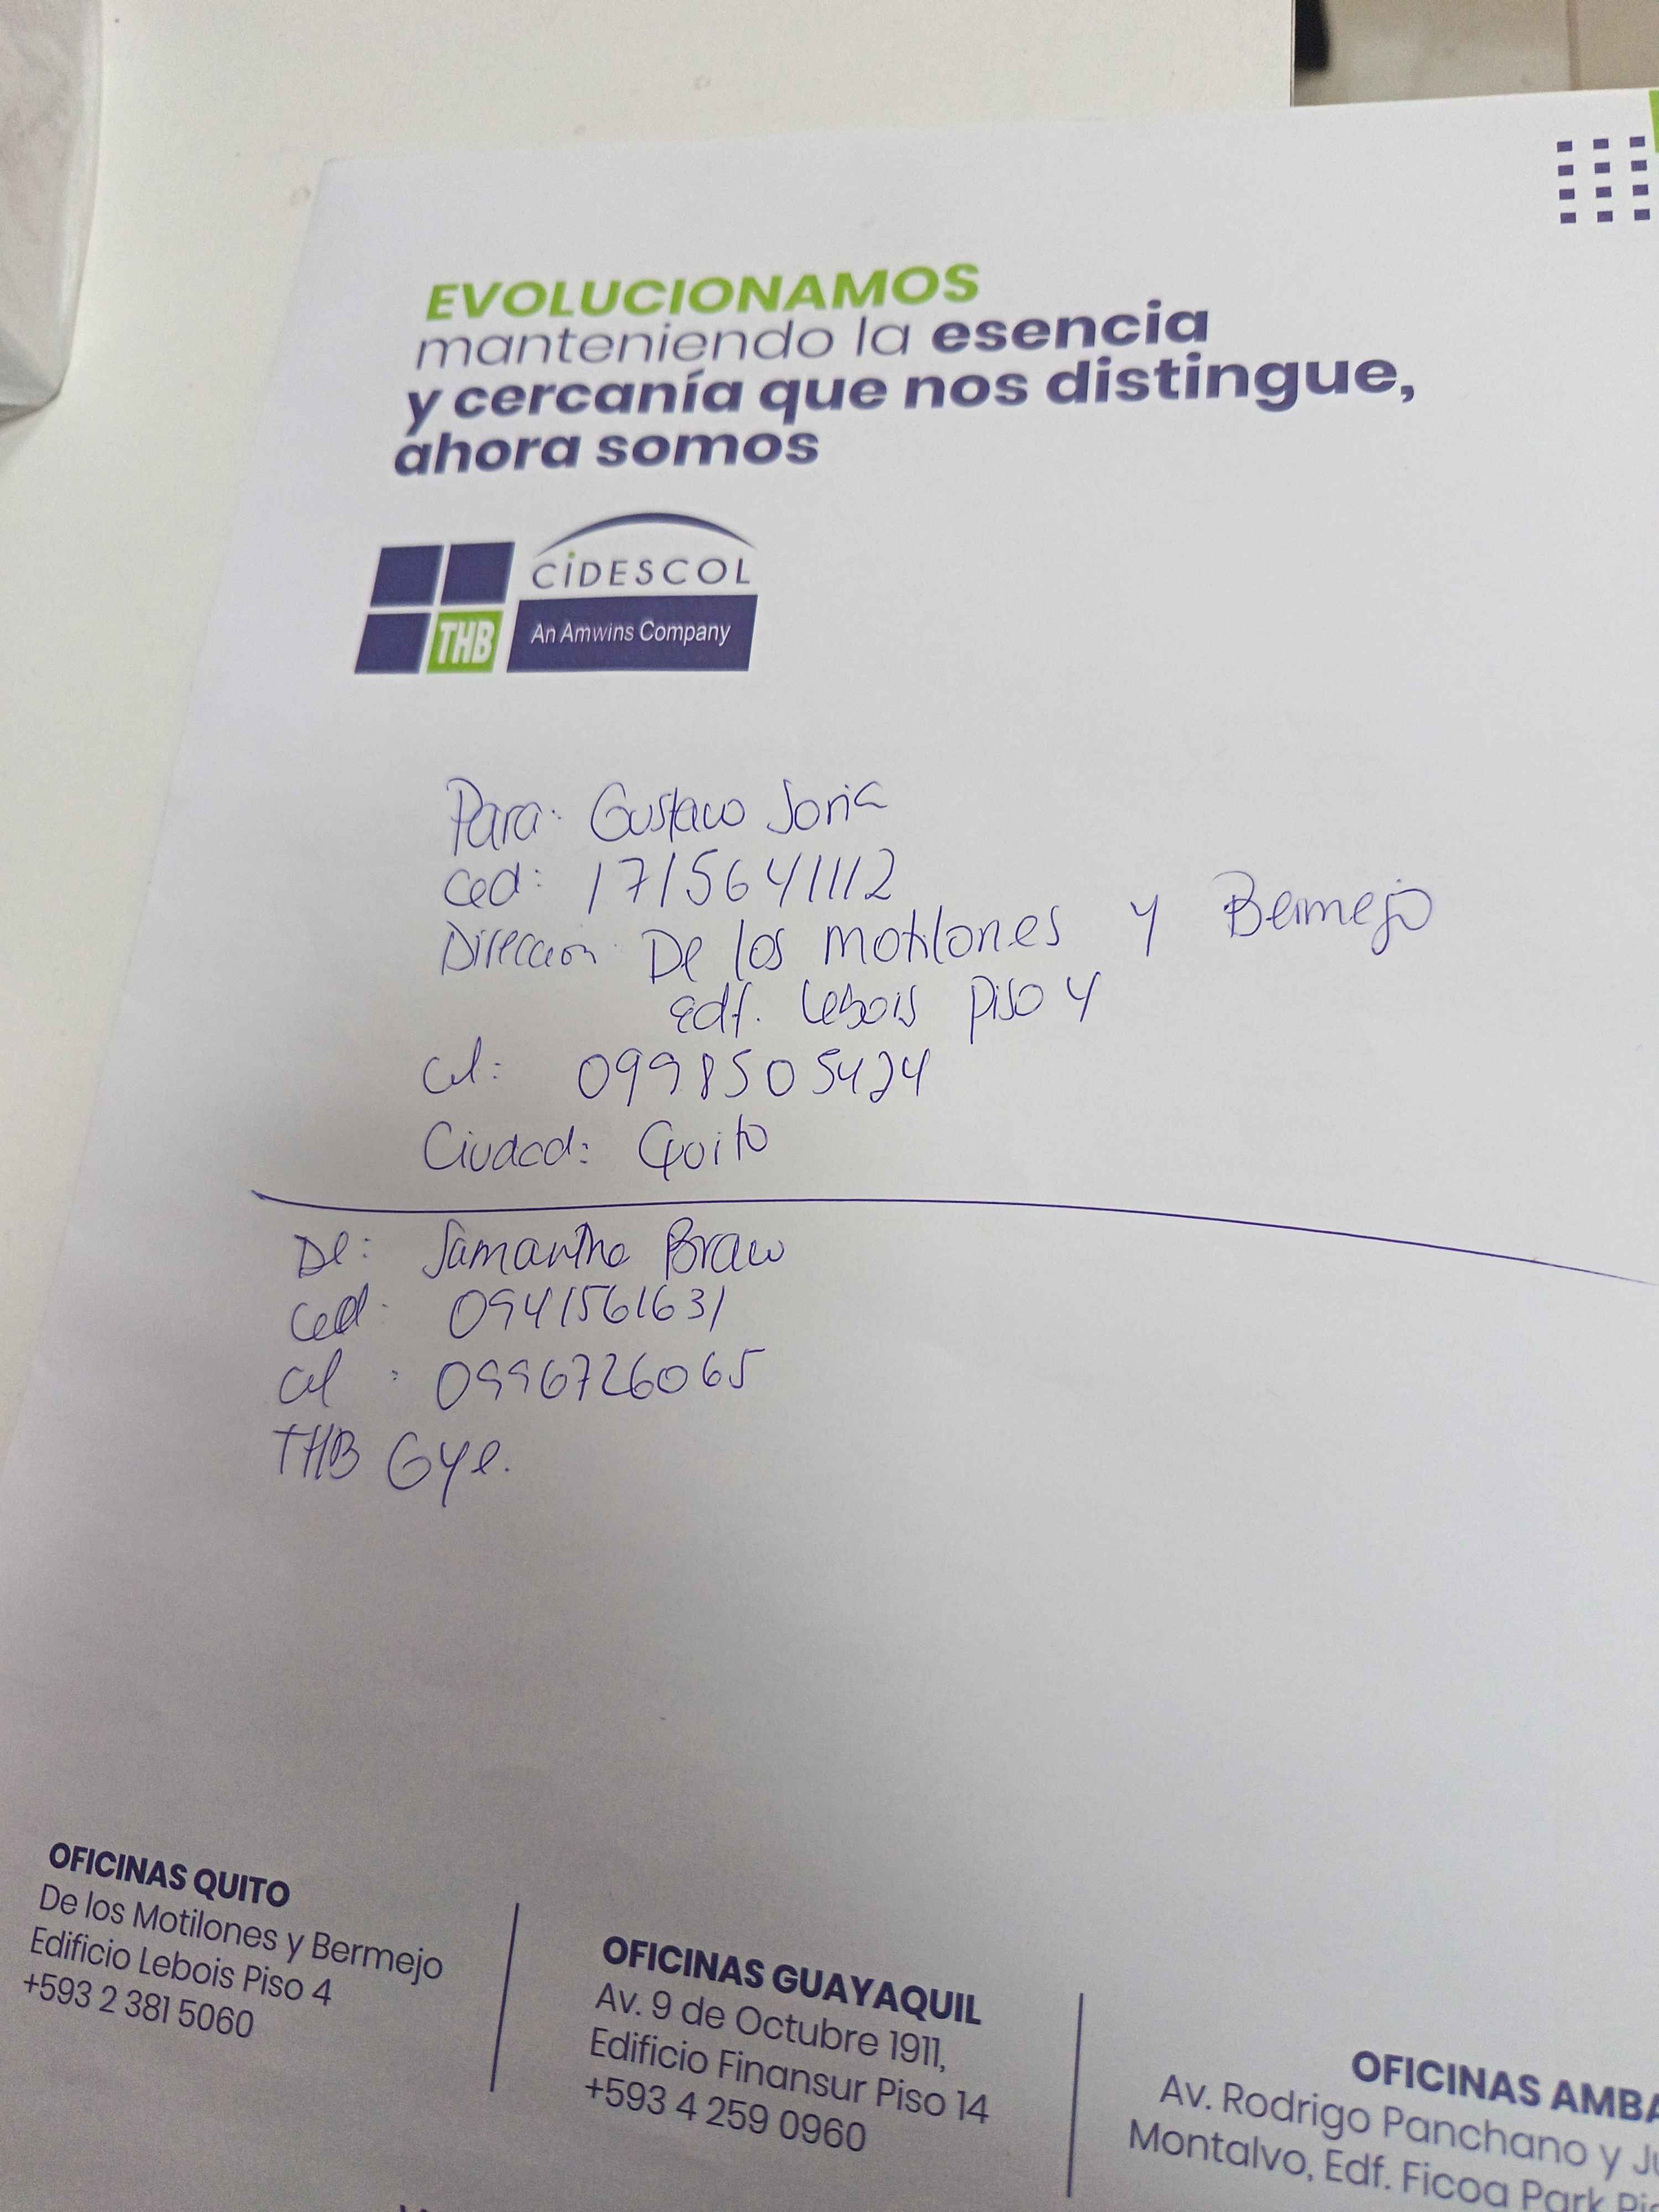 EVOLUCIONAMOS
manteniendo la esencia
y cercanía que nos distingue,
ahora somos
CiDESCOL
THB
An Amwins Company
Para: Gustavo Soria
Ced: 1715641112
Dirección De los motilones y Bermejo
edf. Lebois Piso 4
Cel: 0998505424
Ciudad: Quito
De: Samantha Bravo
Ced: 0941561631
Cel : 0996726065
THB Gye.
OFICINAS QUITO
De los Motilones y Bermejo
Edificio Lebois Piso 4
+593 2 381 5060
OFICINAS GUAYAQUIL
Av. 9 de Octubre 1911,
Edificio Finansur Piso 14
+593 4 259 0960
OFICINAS AMBA
Av. Rodrigo Panchano y Ju
Montalvo, Edf. Ficoa Park Pis